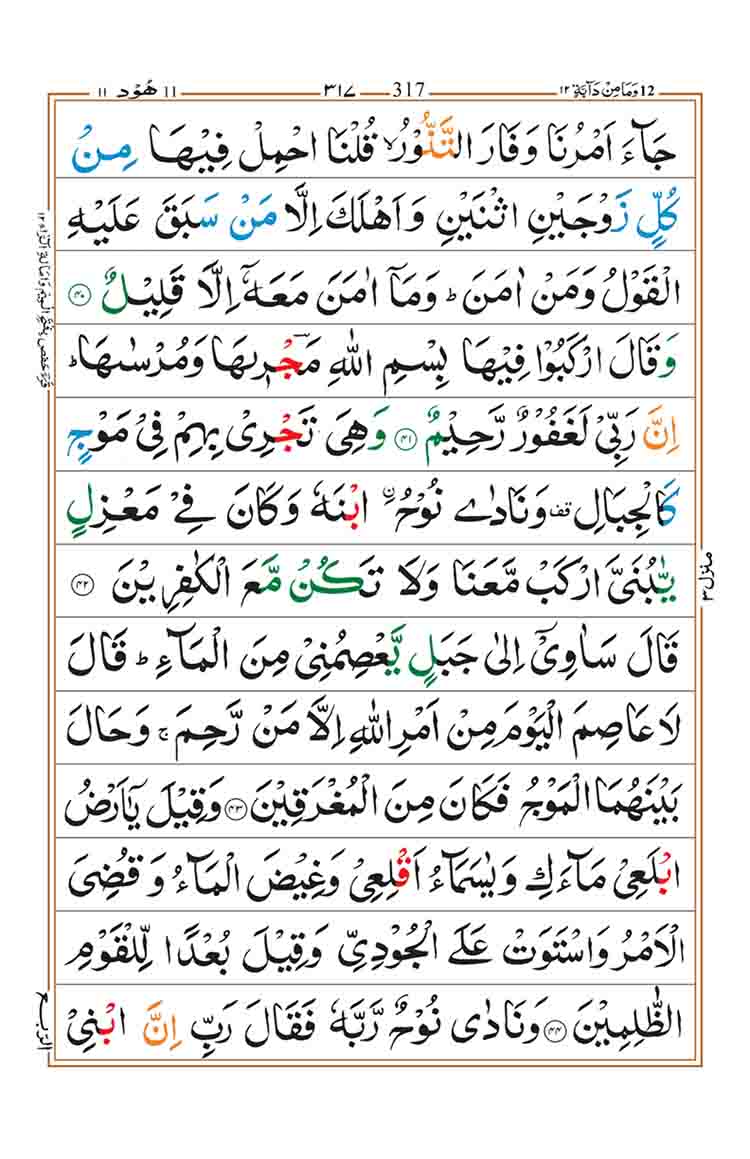 12 وَمَا مِنْ دَآبَّةٍ ١٢ 317 ٣١٧ 11 هُوْد ١١
جَآءَ اَمْرُنَا وَفَارَ التَّنُّوْرُ ۙ قُلْنَا احْمِلْ فِيْهَا مِنْ
كُلٍّ زَوْجَيْنِ اثْنَيْنِ وَاَهْلَكَ اِلَّا مَنْ سَبَقَ عَلَيْهِ
الْقَوْلُ وَمَنْ اٰمَنَ ؕ وَمَاۤ اٰمَنَ مَعَهٗۤ اِلَّا قَلِيْلٌ ۴۰
وَقَالَ ارْكَبُوْا فِيْهَا بِسْمِ اللّٰهِ مَجْرٖىهَا وَمُرْسٰىهَا ؕ
اِنَّ رَبِّيْ لَغَفُوْرٌ رَّحِيْمٌ ۴۱ وَهِيَ تَجْرِيْ بِهِمْ فِيْ مَوْجٍ
كَالْجِبَالِ قف وَنَادٰى نُوْحُ ۨ ابْنَهٗ وَكَانَ فِيْ مَعْزِلٍ
يّٰبُنَيَّ ارْكَبْ مَّعَنَا وَلَا تَكُنْ مَّعَ الْكٰفِرِيْنَ ۴۲
قَالَ سَاٰوِيْۤ اِلٰى جَبَلٍ يَّعْصِمُنِيْ مِنَ الْمَآءِ ؕ قَالَ
لَا عَاصِمَ الْيَوْمَ مِنْ اَمْرِ اللّٰهِ اِلَّا مَنْ رَّحِمَ ۚ وَحَالَ
بَيْنَهُمَا الْمَوْجُ فَكَانَ مِنَ الْمُغْرَقِيْنَ ۴۳ وَقِيْلَ يٰۤاَرْضُ
ابْلَعِيْ مَآءَكِ وَيٰسَمَآءُ اَقْلِعِيْ وَغِيْضَ الْمَآءُ وَقُضِيَ
الْاَمْرُ وَاسْتَوَتْ عَلَى الْجُوْدِيِّ وَقِيْلَ بُعْدًا لِّلْقَوْمِ
الظّٰلِمِيْنَ ۴۴ وَنَادٰى نُوْحٌ رَّبَّهٗ فَقَالَ رَبِّ اِنَّ ابْنِيْ
منزل ٣
الربع